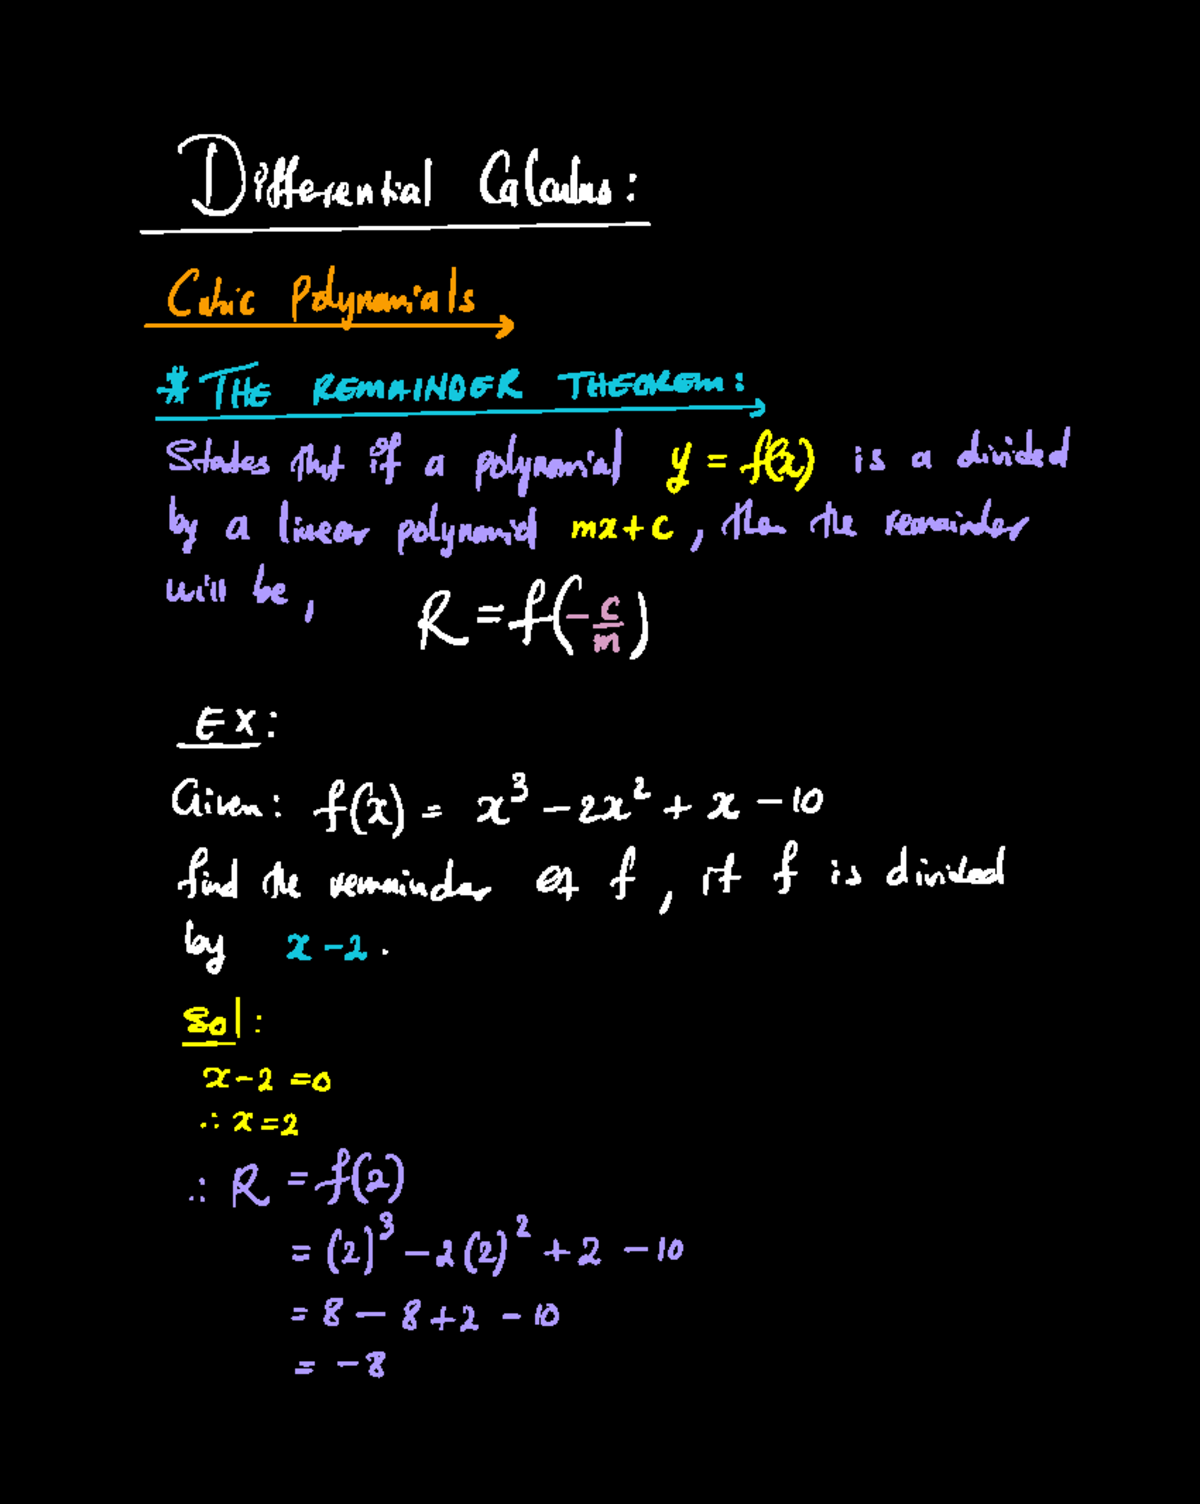 Differential Calculus:
Cubic Polynomials
* THE REMAINDER THEOREM:
States that if a polynomial y = f(x) is a divided
by a linear polynomial mx + c, then the remainder
will be, R = f(-c/m)
EX:
Given: f(x) = x³ - 2x² + x - 10
find the remainder of f, if f is divided
by x - 2.
Sol:
x - 2 = 0
∴ x = 2
∴ R = f(2)
= (2)³ - 2(2)² + 2 - 10
= 8 - 8 + 2 - 10
= -8